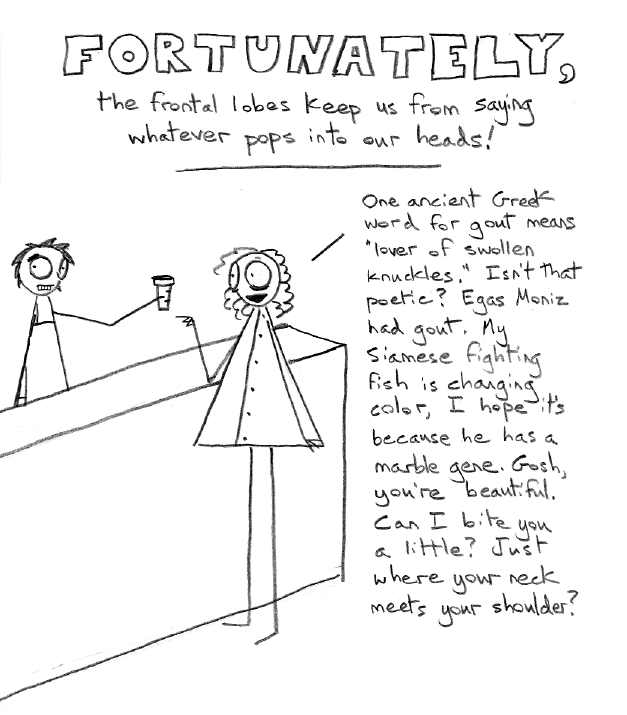 FORTUNATELY,
the frontal lobes keep us from saying
whatever pops into our heads!
One ancient Greek
word for gout means
"lover of swollen
knuckles." Isn't that
poetic? Egas Moniz
had gout. My
Siamese fighting
fish is changing
color, I hope it's
because he has a
marble gene. Gosh,
you're beautiful.
Can I bite you
a little? Just
where your neck
meets your shoulder?